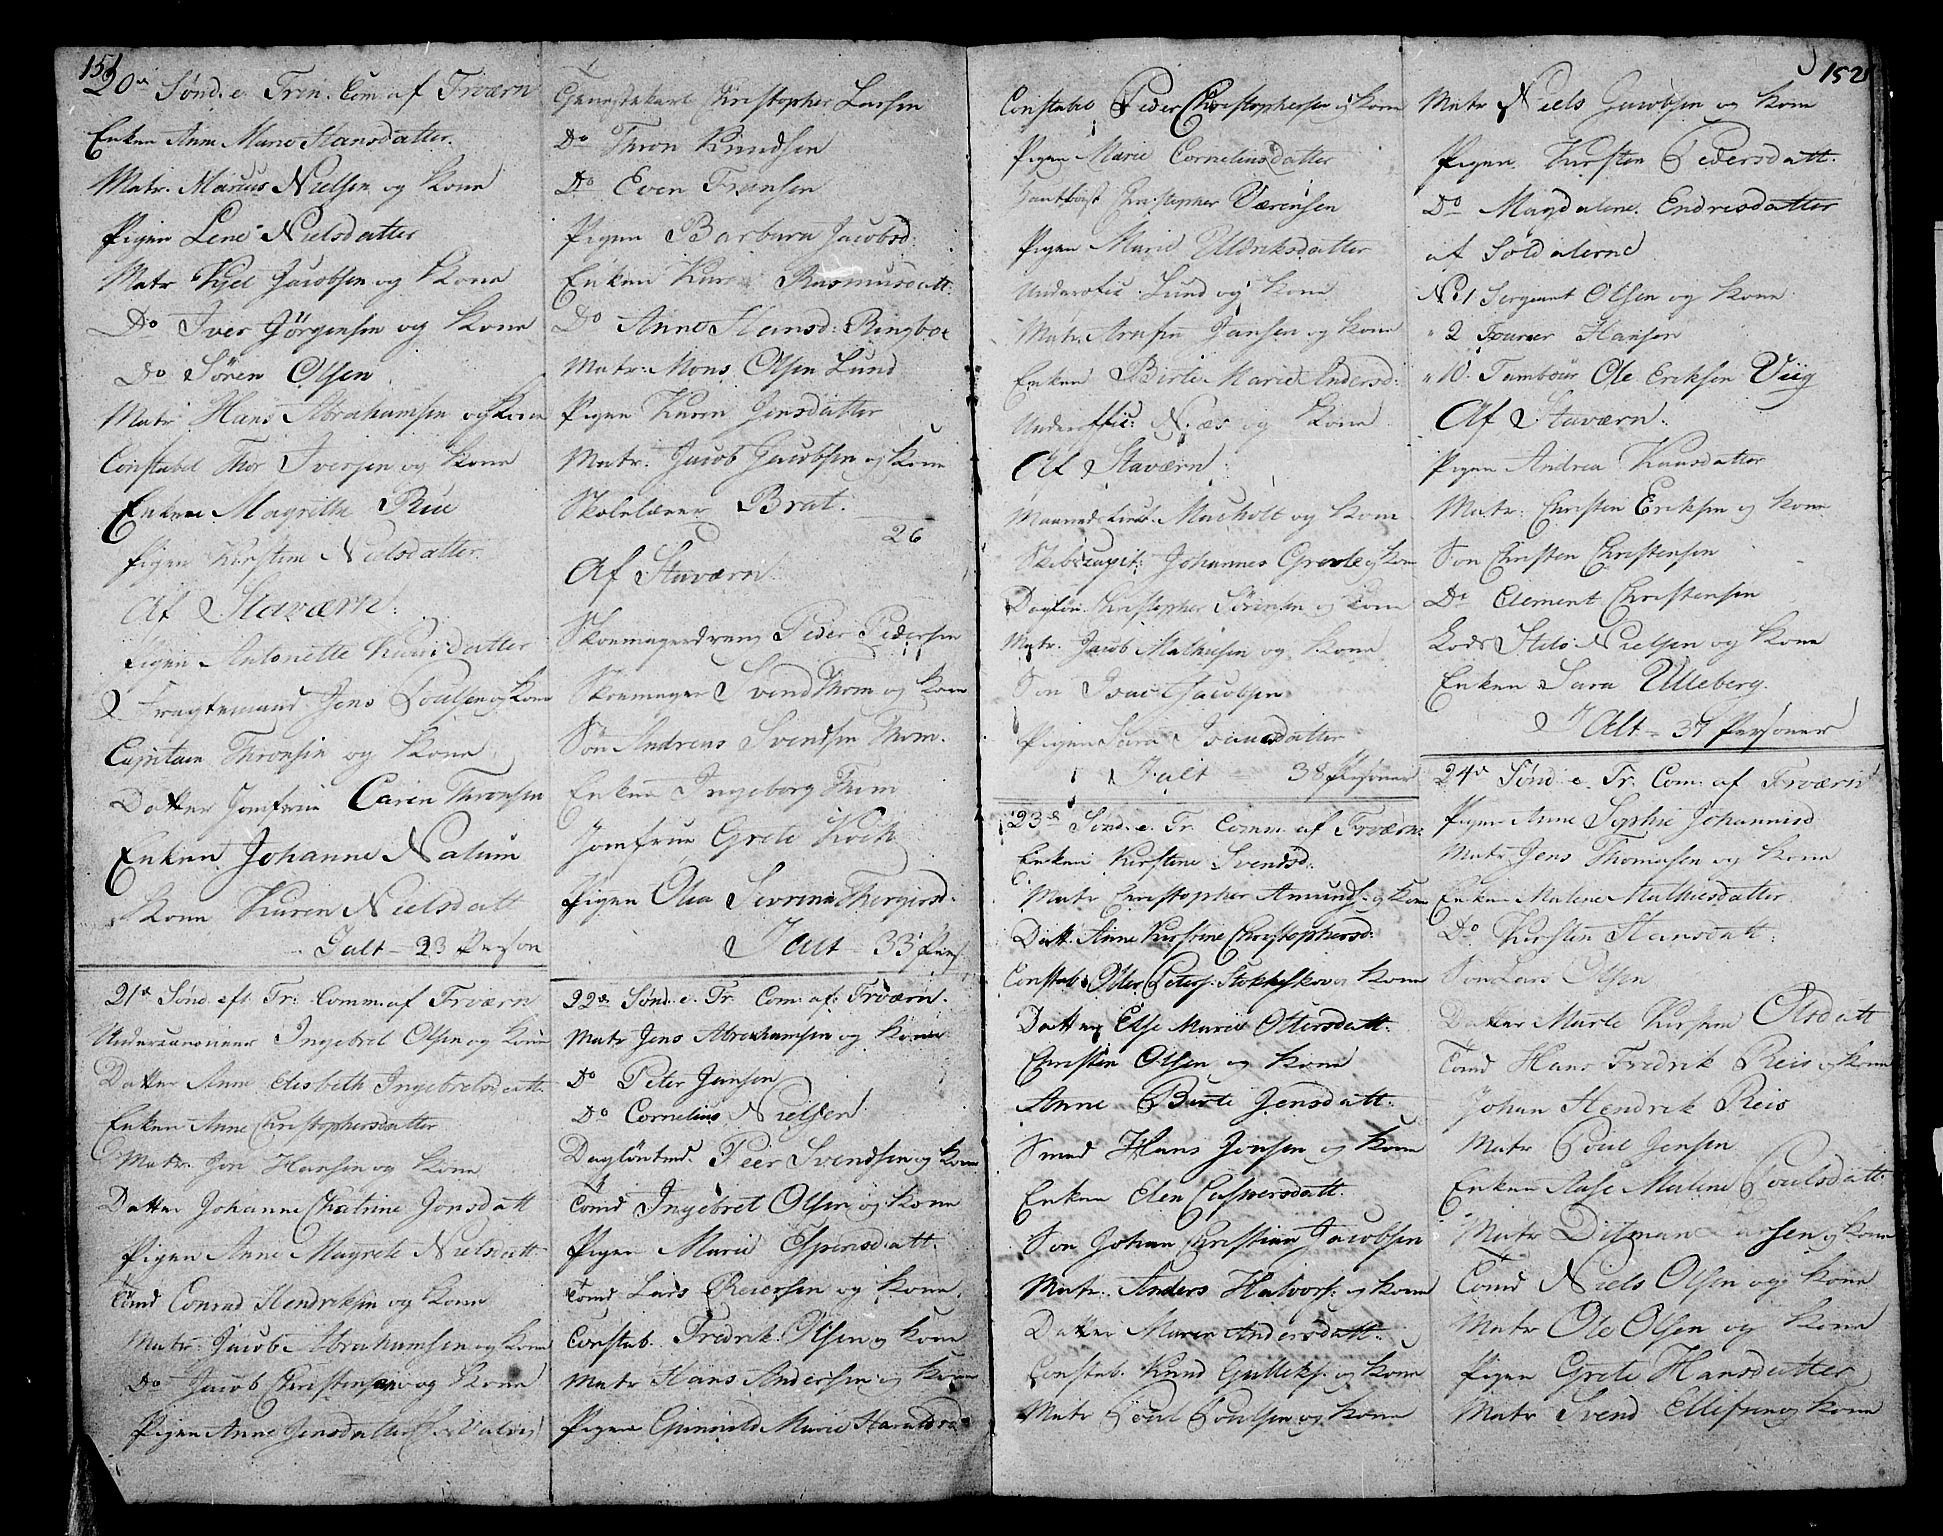 151
20de Sønd. e. Trin. Com. af Frværn
Enken Ane Marie Hansdatter.
Matr. Marcus Nielsen og Kone
Pigen Lene Nielsdatter
Matr Kiel Jacobsen og Kone
Do Iver Jørgensen og Kone
Do Søren Olsen
Matr Hans Abrahamsen og Kone
Constabel Thor Iversen og Kone
Enken Magrethe Riie
Pigen Kirstine Nielsdatter.
Af Staværn:
Pigen Antonette Knudsdatter
Fragtemand Jens Poulsen og Kone
Capitain Thronsen og Kone
Datter Jomfrue Caren Thronsen
Enken Johanne Nalum
Kone Karen Nielsdatt
Ialt - 23 Person
21de Sønd. eft. Tr: Comm. af Frværn
Undercanoneer Ingebret Olsen og Kone
Datter Anne Elisbeth Ingebretsdatt.
Enken Anne Christophersdatter
Matr. Jon Hansen og Kone
Datter Johanne Chatrine Jonsdatt
Pigen Anne Magrete Nielsdatt
Tømd Conrad Hendriksen og Kone
Matr. Jacob Abrahamsen og Kone
Do Jacob Christensen og Kone
Pigen Anne Jensdatter
Christopher Larsen
Do Thron Knudsen
Do Even Fransen
Pigen Barbara Jacobsd:
Enken Karen Rasmusdatt.
Do Anne Hansd: Ringboe
Matr: Mons Olsen Lund
Pigen Karen Jensdatter
Matr. Jacob Jacobsen og Kone
Skolelærer Brat.
26
Af Staværn.
Skoemagerdreng Peder Pedersen
Skoemager Svend Thom og Kone
Søn Andreas Svendsen Thom.
Enken Ingeborg Thom
Jomfrue Grete Koch
Pigen Olea Sevrine Thergiersd.
I Alt - 33 Pers
22de Sønd. e. Tr. Com: af: Frværn.
Matr Jens Abrahamsen og Kone
Do Peter Jansen
Do Cornelius Nielsen
Dagløntmd. Peer Svendsen og Kone
Tømd Ingebret Olsen og Kone
Pigen Marie Espensdatt.
Tømd Lars Reiersen og Kone.
Constab. Fredrik Olsen og Kone
Matr Hans Andersen og Kone
Pigen Gunnild Marie Haraldsd
Constabel Peder Christophersen og Kone
Pigen Marie Corneliusdatter
Christopher Værensen
Pigen Marie Ulleriksdatter
Underofic. Lund og Kone
Matr. Jansen og Kone
Enken Birte Marie Andersd:
Underoffic: Næs og Kone
Af Staværn:
Maaneds Lieut. Macholt og Kone
Skibscapit: Johannes Grove og Kone
Dagløn. Christopher Sørensen og Kone
Matr. Jacob Mathisen og Kone
Søn Isac Jacobsen
Pigen Sara Isacsdatter
I alt - 38 Personer
23de Sønd. e. Tr. Comm. af Frværn.
Enken Kirstine Svendsd:
Matr Christopher Amunds. og Kone
Datt. Anne Kirstine Christophersd:
Constab. Peters. Stokkeskov og Kone
Datter Else Marie Ottersdatt.
Christen Olsen og Kone
Anne Birte Jensdatt:
Smed Hans Jonsen og Kone
Enken Elen Caspersdatt.
Søn Johan Christian Jacobsen
Matr: Anders Halvors: og Kone
Datter Maren Andersdatt:
Constab. Knud Gulleks. og Kone
Matr Poul Poulsen og Kone
152
Matr Niels Jacobsen og Kone
Pigen Kirsten Pedersdatt.
Do Magdalene Endresdatter
af Soldaterne
No 1 Sergeant Olsen og Kone
" 2 Fourer Hansen
" 10. Tambour Ole Eriksen Viig
Af Staværn.
Pigen Andrea Knudsdatter
Matr: Christen Eriksen og Kone
Søn Christen Christensen
Do Clement Christensen
Lods Nielsen og Kone
Enken Sara Ulleberg.
I Alt - 37 Personer
24de Sønd. e. Tr. Com: af Frværn
Pigen Anne Sophie Johannisd
Matr Jens Thomasen og Kone
Enken Malene Mathiesdatter
Do Kirsten Hansdatt:
Søn Lars Olsen
Datter Marte Kirstine Olsdatt
Tømd Hans Fredrik Reis og Kone
Johan Hendrik Reis
Matr Poul Jensen
Enken Aase Malene Poulsdatt.
Matr Ditman Larsen og Kone
Tømd Niels Olsen og Kone
Matr Ole Olsen og Kone
Pigen Grete Hansdatter
Matr Svend Ellefsen og Kone